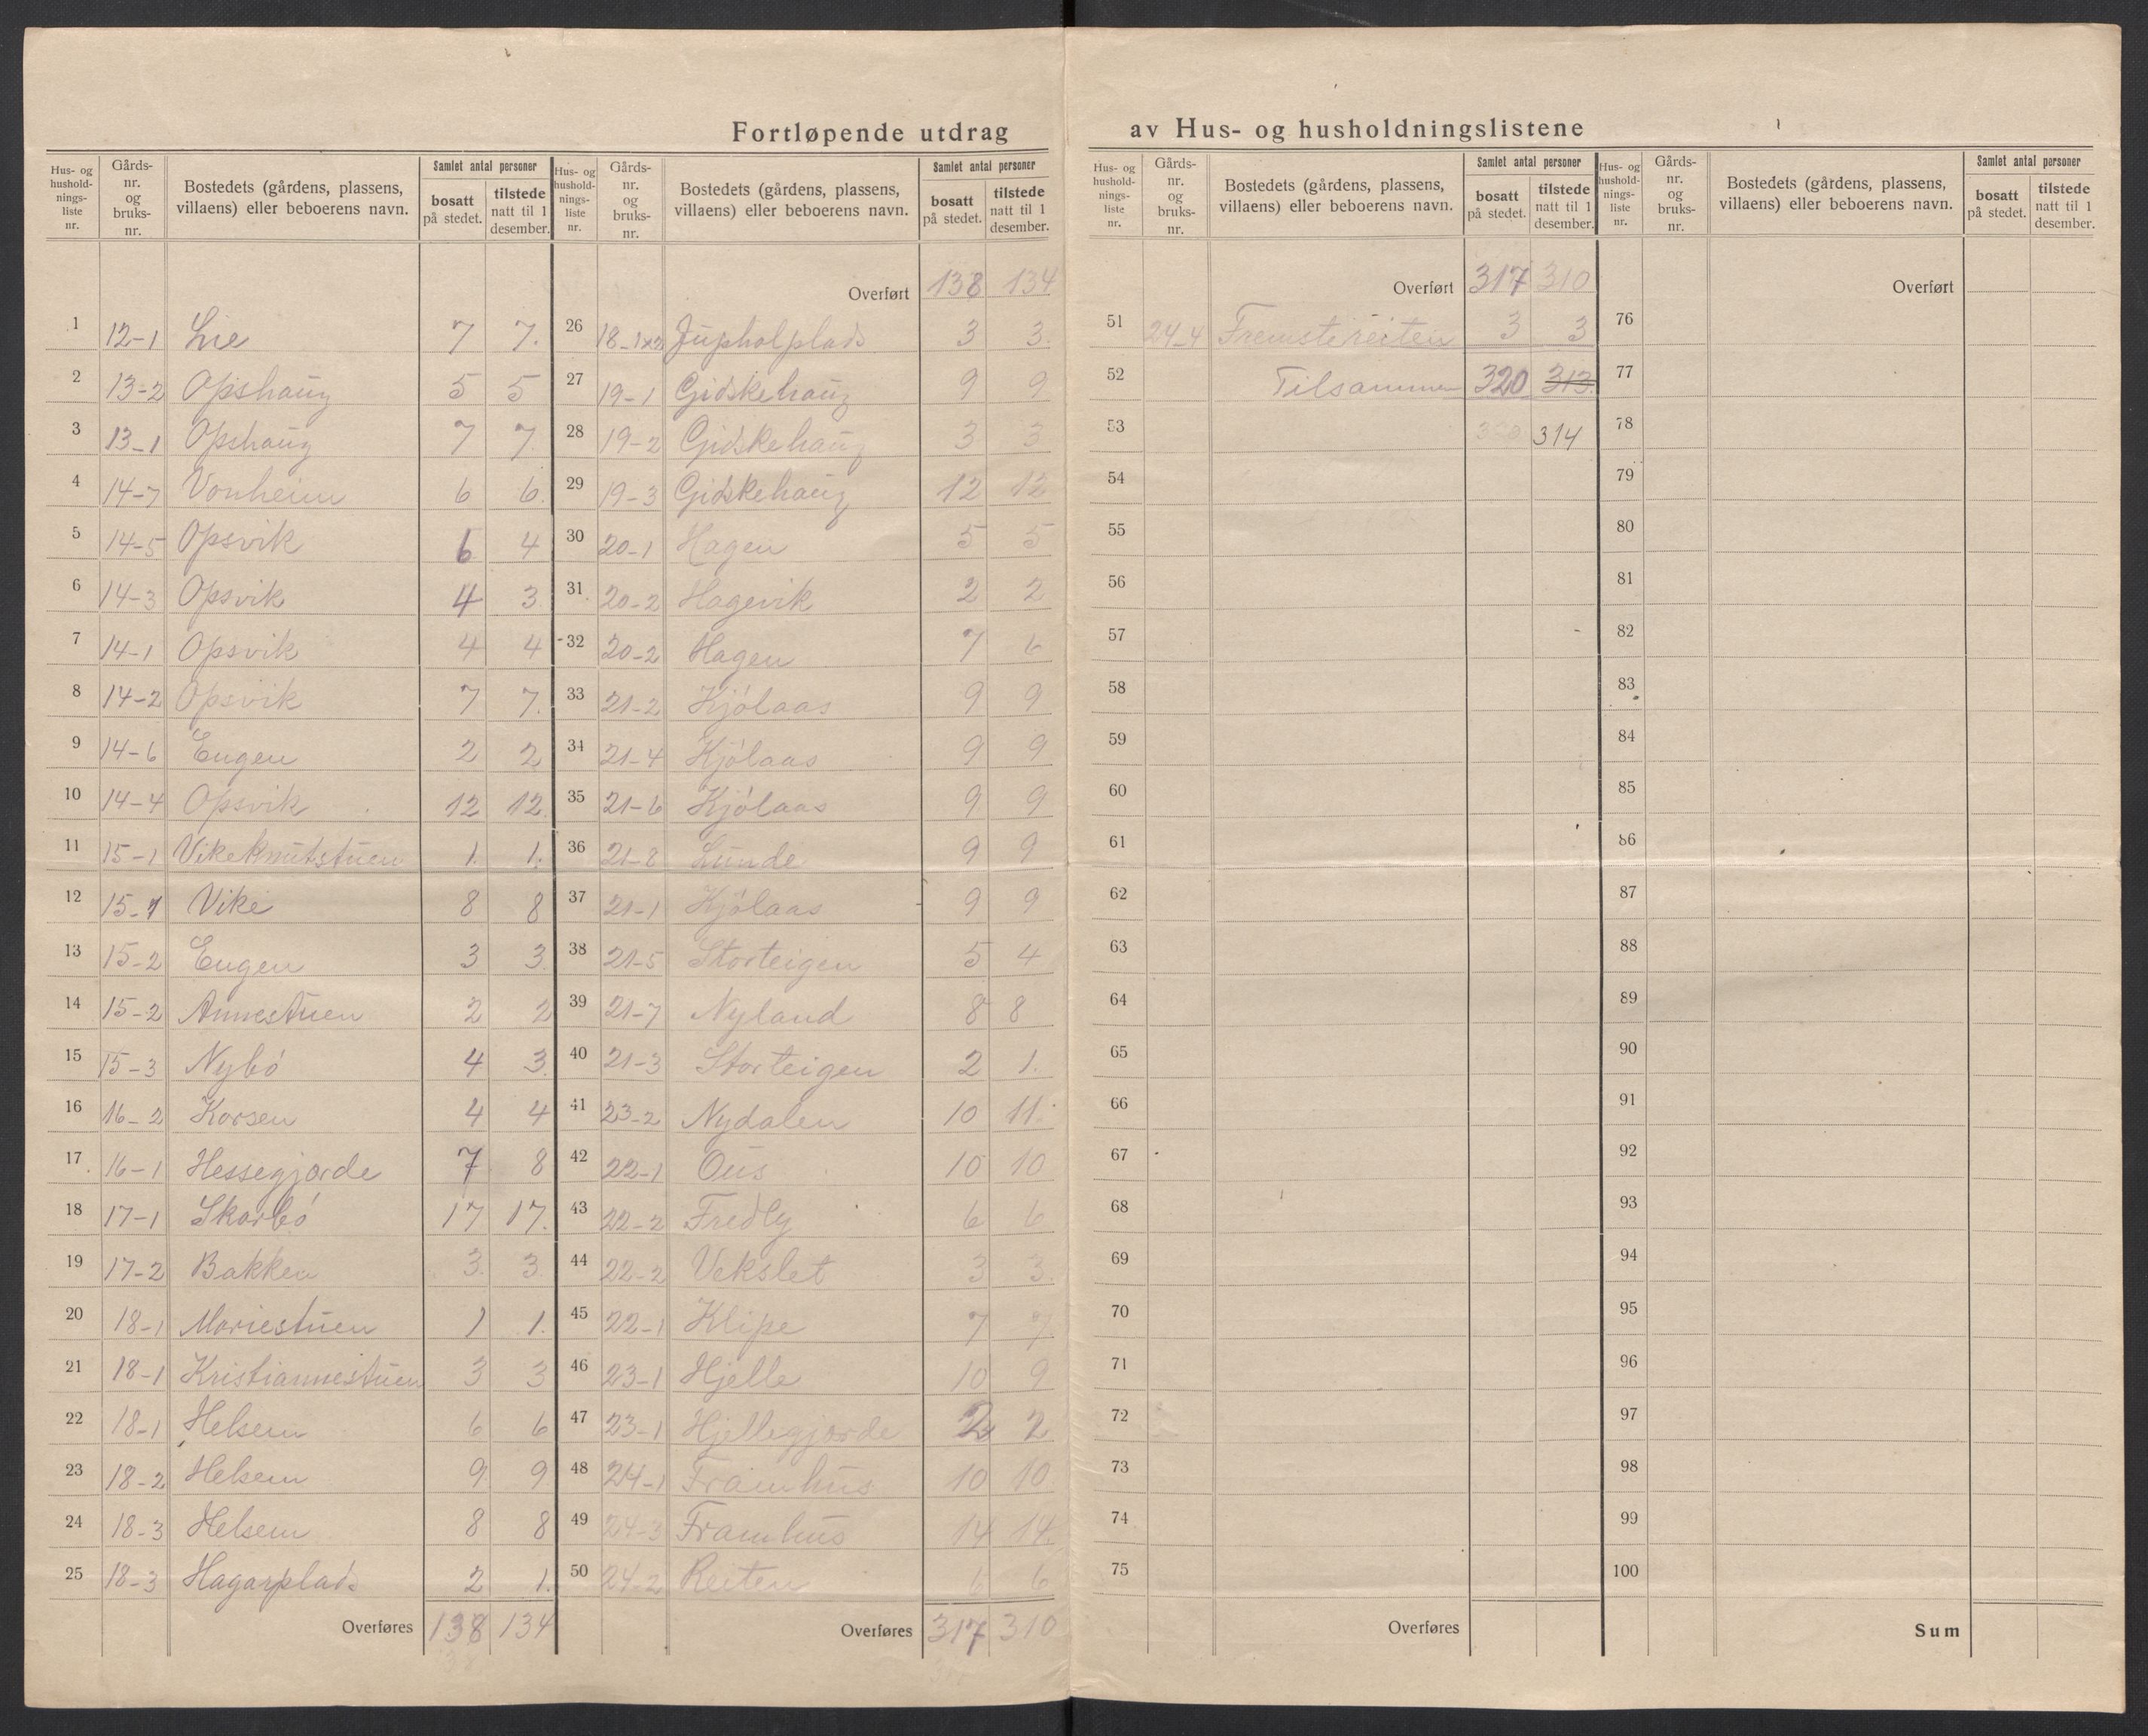 Fortløpende utdrag av Hus- og husholdningslistene
Hus- og hushold-nings-liste nr. Gårds-nr. og bruks-nr. Bostedets (gårdens, plassens, villaens) eller beboerens navn. Samlet antal personer bosatt på stedet. tilstede natt til 1 desember.
1 12-1 Lie 7 7.
2 13-2 Opshaug 5 5
3 13-1 Opshaug 7 7
4 14-7 Vonheim 6 6.
5 14-5 Opsvik 6 4
6 14-3 Opsvik 4 3
7 14-1 Opsvik 4 4
8 14-2 Opsvik 7 7.
9 14-6 Engen 2 2
10 14-4 Opsvik 12 12
11 15-1 Vikeknutstuen 1. 1.
12 15-1 Vike 8 8
13 15-2 Engen 3 3
14 15-2 Annestuen 2 2
15 15-3 Nybö 4 3
16 16-2 Korsen 4 4
17 16-1 Hessegjorde 7 8
18 17-1 Skorbö 17 17.
19 17-2 Bakken 3 3
20 18-1 Mariestuen 1 1.
21 18-1 Kristiannestuen 3 3
22 18-1 Helsem 6 6
23 18-2 Helsem 9 9
24 18-3 Helsem 8 8
25 18-3 Hagarplads 2 1.
Overføres 138 134
Hus- og hushold-nings-liste nr. Gårds-nr. og bruks-nr. Bostedets (gårdens, plassens, villaens) eller beboerens navn. Samlet antal personer bosatt på stedet. tilstede natt til 1 desember.
Overført 138 134
26 18-1x2 Jupholplads 3 3.
27 19-1 Gidskehaug 9 9
28 19-2 Gidskehaug 3 3
29 19-3 Gidskehaug 12 12
30 20-1 Hagen 5 5
31 20-2 Hagevik 2 2
32 20-2 Hagen 7 6
33 21-2 Kjölaas 9 9
34 21-4 Kjölaas 9 9
35 21-6 Kjölaas 9 9
36 21-8 Lunde 9 9
37 21-1 Kjölaas 9 9
38 21-5 Storteigen 5 4
39 21-7 Nyland 8 8
40 21-3 Storteigen 2 1.
41 23-2 Nydalen 10 11.
42 22-1 Ous 10 10
43 22-2 Fredly 6 6
44 22-2 Vekslet 3 3.
45 22-1 Klipe 7 7
46 23-1 Hjelle 10 9
47 23-1 Hjellegjorde 2 2
48 24-1 Framhus 10 10
49 24-3 Framhus 14 14.
50 24-2 Reiten 6 6
Overføres 317 310
Hus- og hushold-nings-liste nr. Gårds-nr. og bruks-nr. Bostedets (gårdens, plassens, villaens) eller beboerens navn. Samlet antal personer bosatt på stedet. tilstede natt til 1 desember.
Overført 317 310
51 24-4 Fremstereiten 3 3
52 Tilsammen 320 313.
53 320 314
54
55
56
57
58
59
60
61
62
63
64
65
66
67
68
69
70
71
72
73
74
75
Overføres
Hus- og hushold-nings-liste nr. Gårds-nr. og bruks-nr. Bostedets (gårdens, plassens, villaens) eller beboerens navn. Samlet antal personer bosatt på stedet. tilstede natt til 1 desember.
Overført
76
77
78
79
80
81
82
83
84
85
86
87
88
89
90
91
92
93
94
95
96
97
98
99
100
Sum